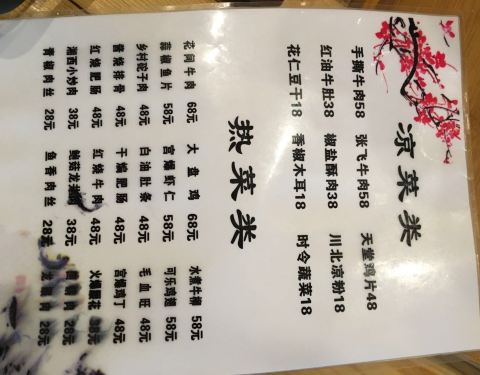 凉菜类
手撕牛肉58 张飞牛肉58 天堂鸡片48
红油牛肚38 椒盐酥肉38 川北凉粉18
花仁豆干18 香椒木耳18 时令蔬菜18
热菜类
花间牛肉 68元 大盘鸡 68元 水煮牛柳 58元
蒜椒鱼片 58元 宫爆虾仁 58元 可乐鸡翅 58元
乡村砣子肉 48元 白油肚条 48元 毛血旺 48元
酱烧排骨 48元 干煸肥肠 48元 宫爆鸡丁 48元
红烧肥肠 48元 红烧牛肉 48元 火爆腰花
湘西小炒肉 38元 鲍菇龙 38元 肉 38元
青椒肉丝 28元 鱼香肉丝 28元 肉 28元